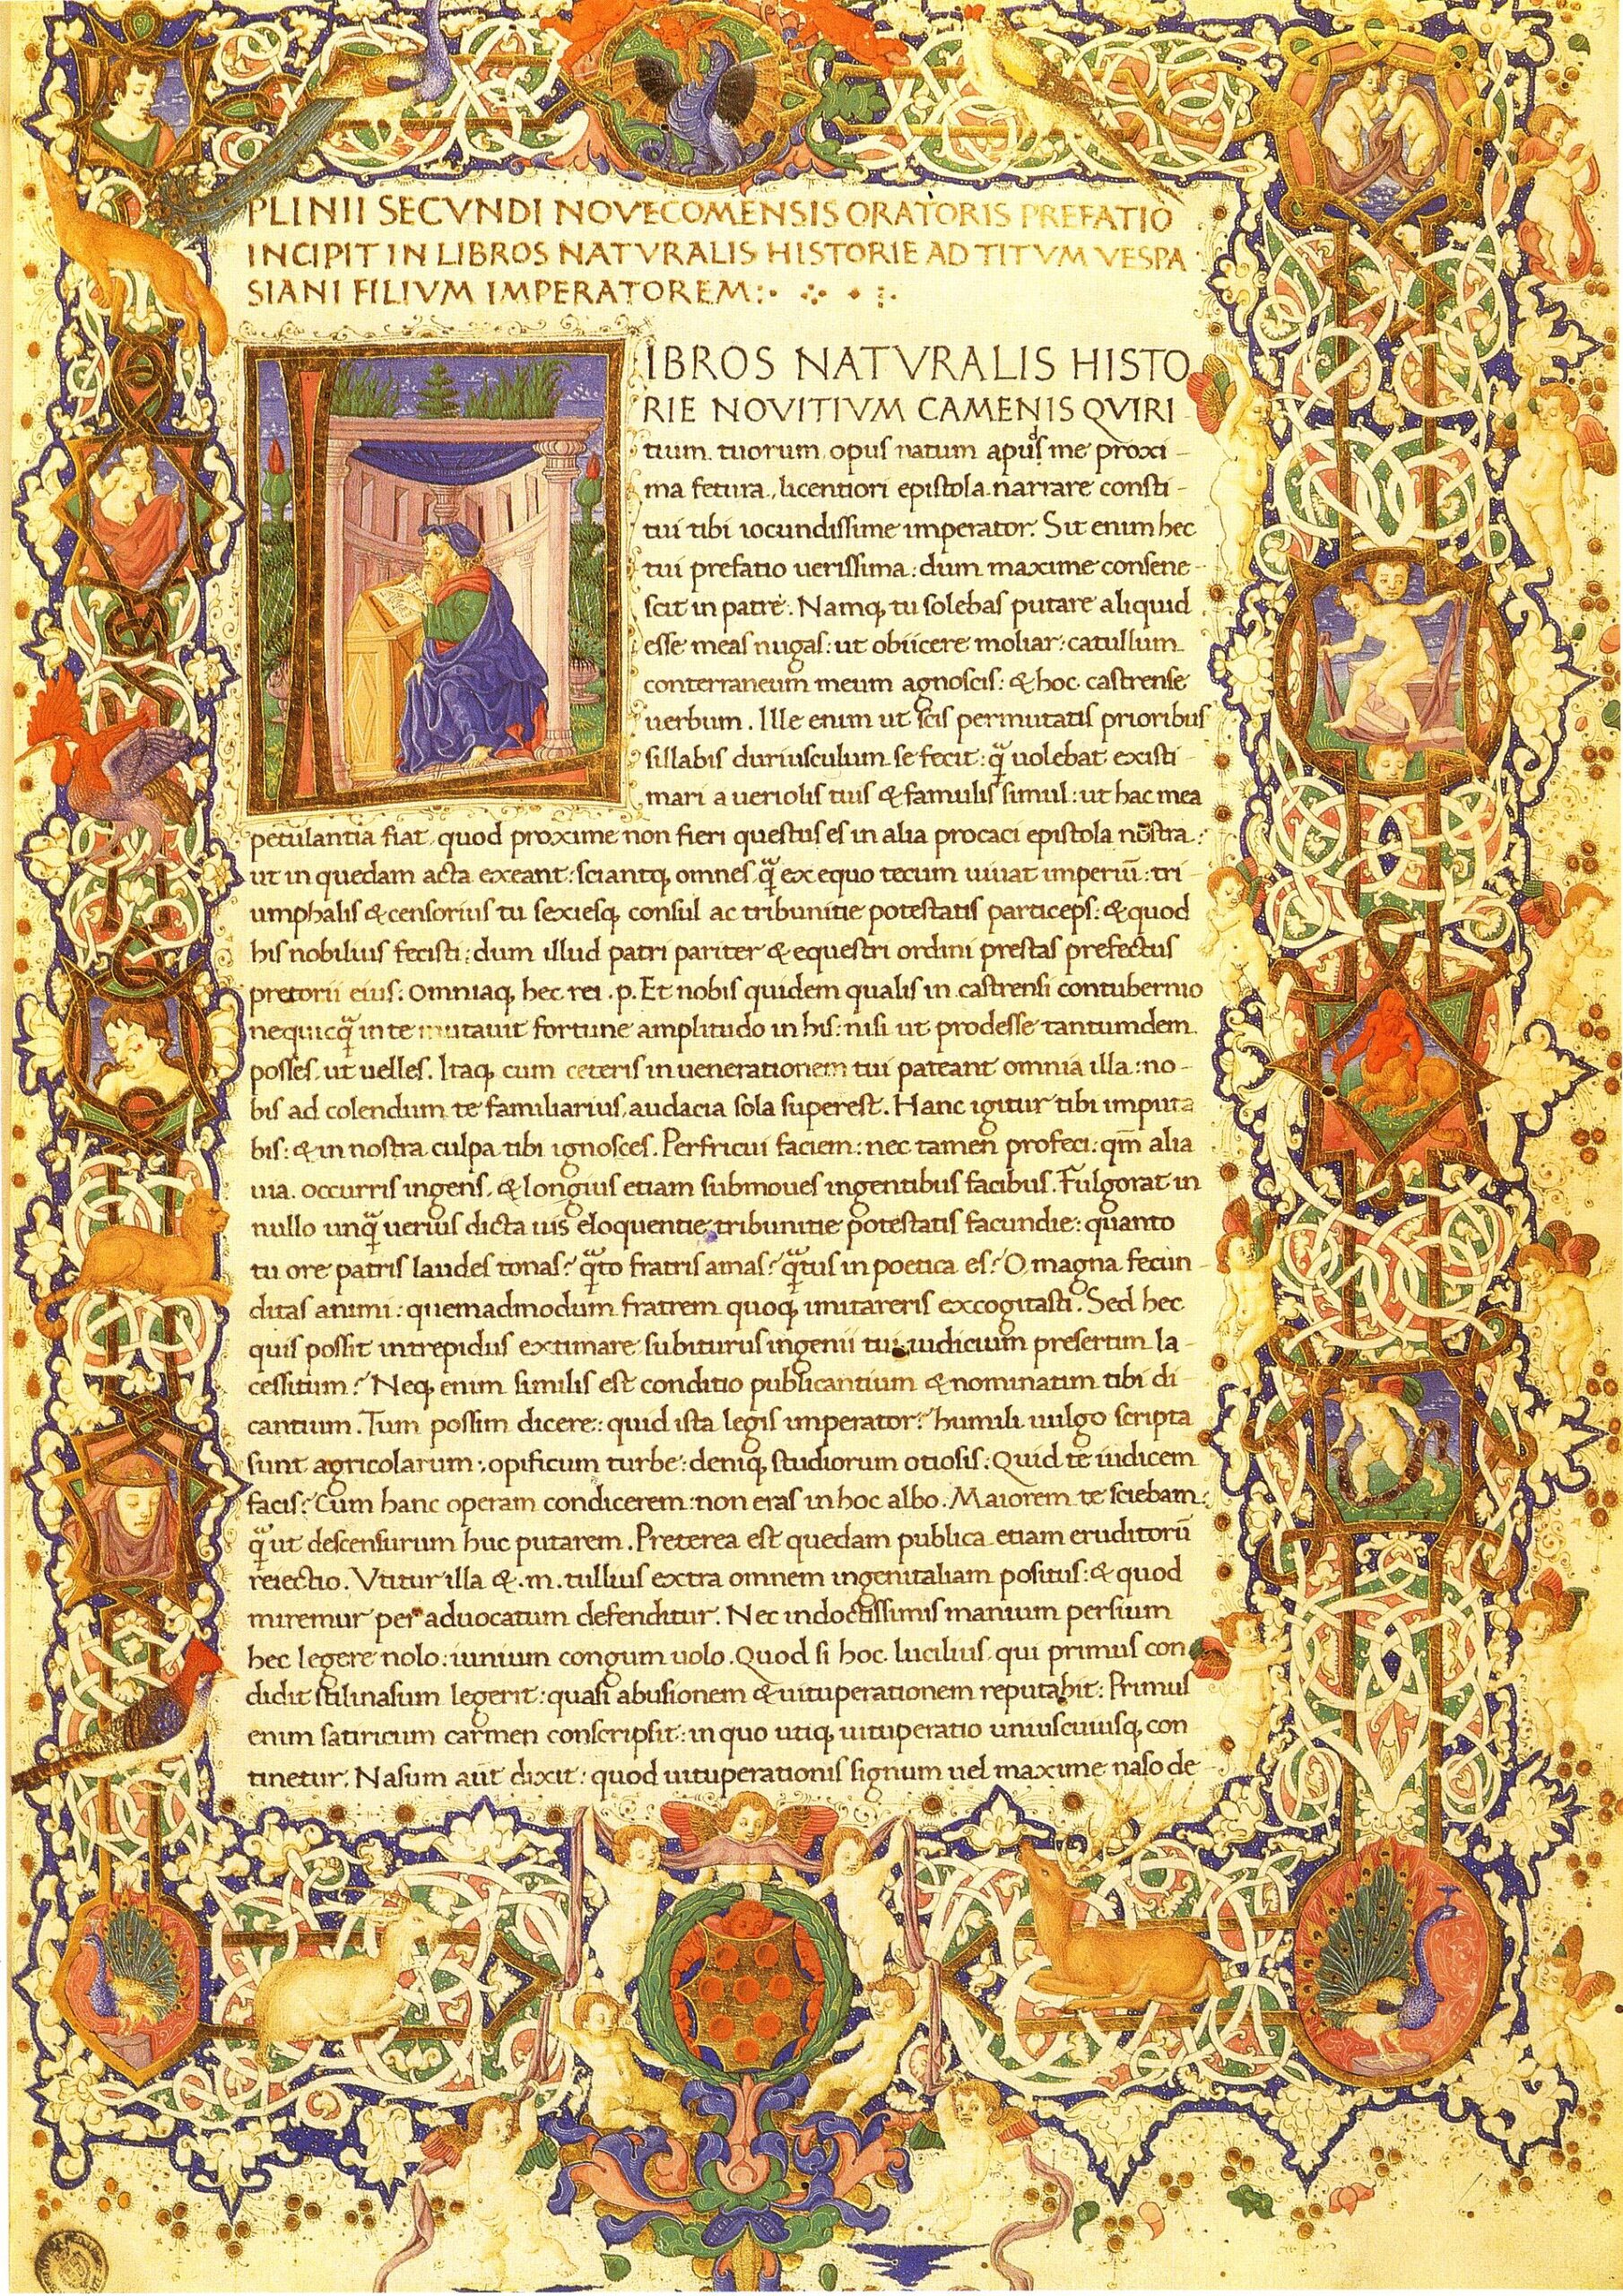 PLINII SECVNDI NOVECOMENSIS ORATORIS PREFATIO
INCIPIT IN LIBROS NATVRALIS HISTORIE AD TITVM VESPA
SIANI FILIVM IMPERATOREM:
LIBROS NATVRALIS HISTO
RIE NOVITIVM CAMENIS QVIRI
tium tuorum opus natum apud me proxi-
ma fetura, licentiori epistola narrare consti-
tui tibi iocundissime imperator. Sit enim hec
tui prefatio uerissima: dum maxime consene-
scit in patre. Namq; tu solebas putare aliquid
esse meas nugas: ut obiicere moliar: catullum
conterraneum meum agnoscis: & hoc castrense
uerbum. Ille enim ut scis permutatis prioribus
sillabis duriusculum se fecit: q̃ uolebat existi
mari a ueriolis tuis & famulis simul: ut hac mea
petulantia fiat, quod proxime non fieri questus es in alia procaci epistola nostra:
ut in quedam acta exeant: sciantq; omnes q̃ ex equo tecum uiuat imperiū: tri
umphalis & censorius tu sexiesq; consul ac tribunitie potestatis particeps: & quod
his nobilius fecisti: dum illud patri pariter & equestri ordini prestas prefectus
pretorii eius: Omniaq; hec rei .p. Et nobis quidem qualis in castrensi contubernio
nequicq̃ in te mutauit fortune amplitudo in his: nisi ut prodesse tantumdem
posses, ut uelles. Itaq; cum ceteris in uenerationem tui pateant omnia illa: no-
bis ad colendum te familiarius, audacia sola superest. Hanc igitur tibi imputa
bis: & in nostra culpa tibi ignosces. Perfricui faciem: nec tamen profeci: qm̄ alia
uia occurris ingens, & longius etiam submoues ingentibus facibus. Fulgorat in
nullo unq̃ uerius dicta uis eloquentie, tribunitie potestatis facundie: quanto
tu ore patris laudes tonas? q̃to fratris amas? q̃tus in poetica es? O magna fecun-
ditas animi: quemadmodum fratrem quoq; imitareris excogitasti. Sed hec
quis possit intrepidus extimare subiturus ingenii tui iudicium presertim la-
cessitum? Neq; enim similis est conditio publicantium & nominatim tibi di-
cantium. Tum possim dicere: quid ista legis imperator? humili uulgo scripta
sunt agricolarum: opificum turbe: deniq; studiorum otiosis: Quid te iudicem
facis? Cum hanc operam condicerem: non eras in hoc albo. Maiorem te sciebam:
q̃ ut descensurum huc putarem. Preterea est quedam publica etiam eruditorū
reiectio. Vtitur illa & .m. tullius extra omnem ingenitaliam positus: & quod
miremur per aduocatum defenditur. Nec indoctissimis manium persium
hec legere nolo: iunium congum uolo. Quod si hoc lucilius, qui primus con
didit stilinasum legerit: quasi abusionem & uituperationem reputabit: Primus
enim satiricum carmen conscripsit: in quo utiq; uituperatio uniuscuiusq; con
tinetur. Nasum aūt dixit: quod uituperationis signum uel maxime naso de-